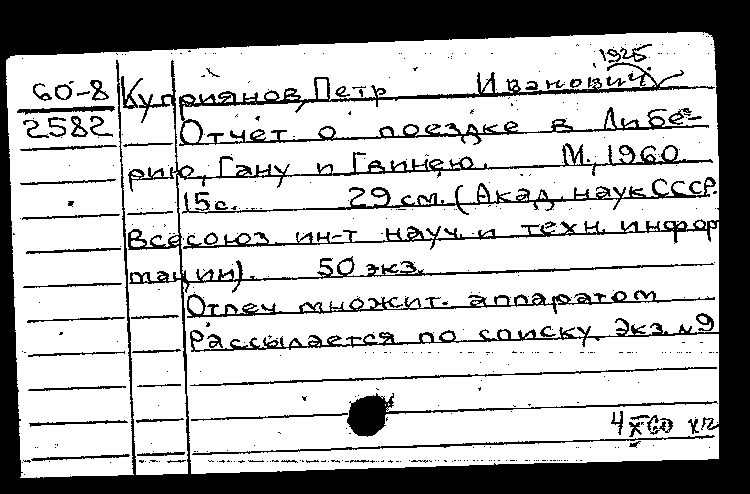 1925
60-8 Куприянов, Петр Иванович
2582 Отчет о поездке в Либе-
рию, Гану и Гвинею. М., 1960
15с. 29 см. (Акад. наук СССР.
Всесоюз. ин-т науч. и техн. инфор
мации). 50 экз.
Отпеч. множит. аппаратом
Рассылается по списку. Экз. №9
4 X 60